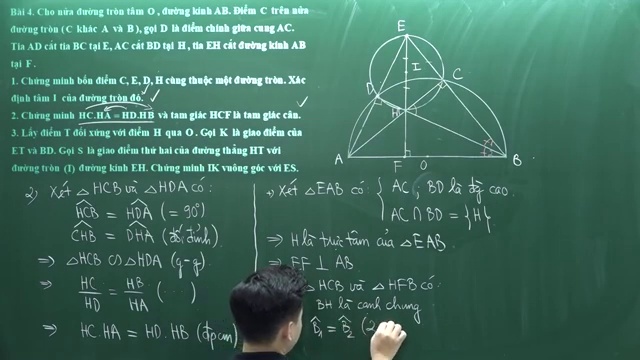 Bài 4. Cho nửa đường tròn tâm O, đường kính AB. Điểm C trên nửa
đường tròn (C khác A và B), gọi D là điểm chính giữa cung AC.
Tia AD cắt tia BC tại E, AC cắt BD tại H, tia EH cắt đường kính AB
tại F.
1. Chứng minh bốn điểm C, E, D, H cùng thuộc một đường tròn. Xác
định tâm I của đường tròn đó.
2. Chứng minh HC.HA = HD.HB và tam giác HCF là tam giác cân.
3. Lấy điểm T đối xứng với điểm H qua O. Gọi K là giao điểm của
ET và BD. Gọi S là giao điểm thứ hai của đường thẳng HT với
đường tròn (I) đường kính EH. Chứng minh IK vuông góc với ES.
E
I
D
C
H
A
F
O
B
2) Xét △HCB và △HDA có:
HCB = HDA (= 90°)
CHB = DHA (đối đỉnh)
⇒ △HCB ∽ △HDA (g-g)
⇒ HC/HD = HB/HA (...)
⇒ HC.HA = HD.HB (đpcm)
+, Xét △EAB có: { AC; BD là đg cao.
AC ∩ BD = {H}
⇒ H là trực tâm của △EAB
⇒ EF ⊥ AB
△HCB và △HFB có:
BH là cạnh chung
B̂1 = B̂2 (2